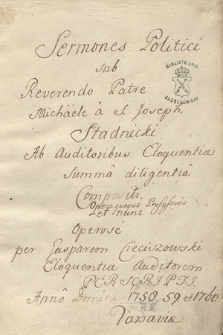 Sermones Politici
sub
Reverendo Patre
Michäele à S. Joseph
Stadnicki
Ab Auditoribus Eloquentiæ
Summâ diligentiâ
Compositi
et
Operose
per Gasparem Cieciszowski
Eloquentiæ Auditorem
PERSCRIPTI
Annô Domini 1758, 59 et 1760
Varsaviæ